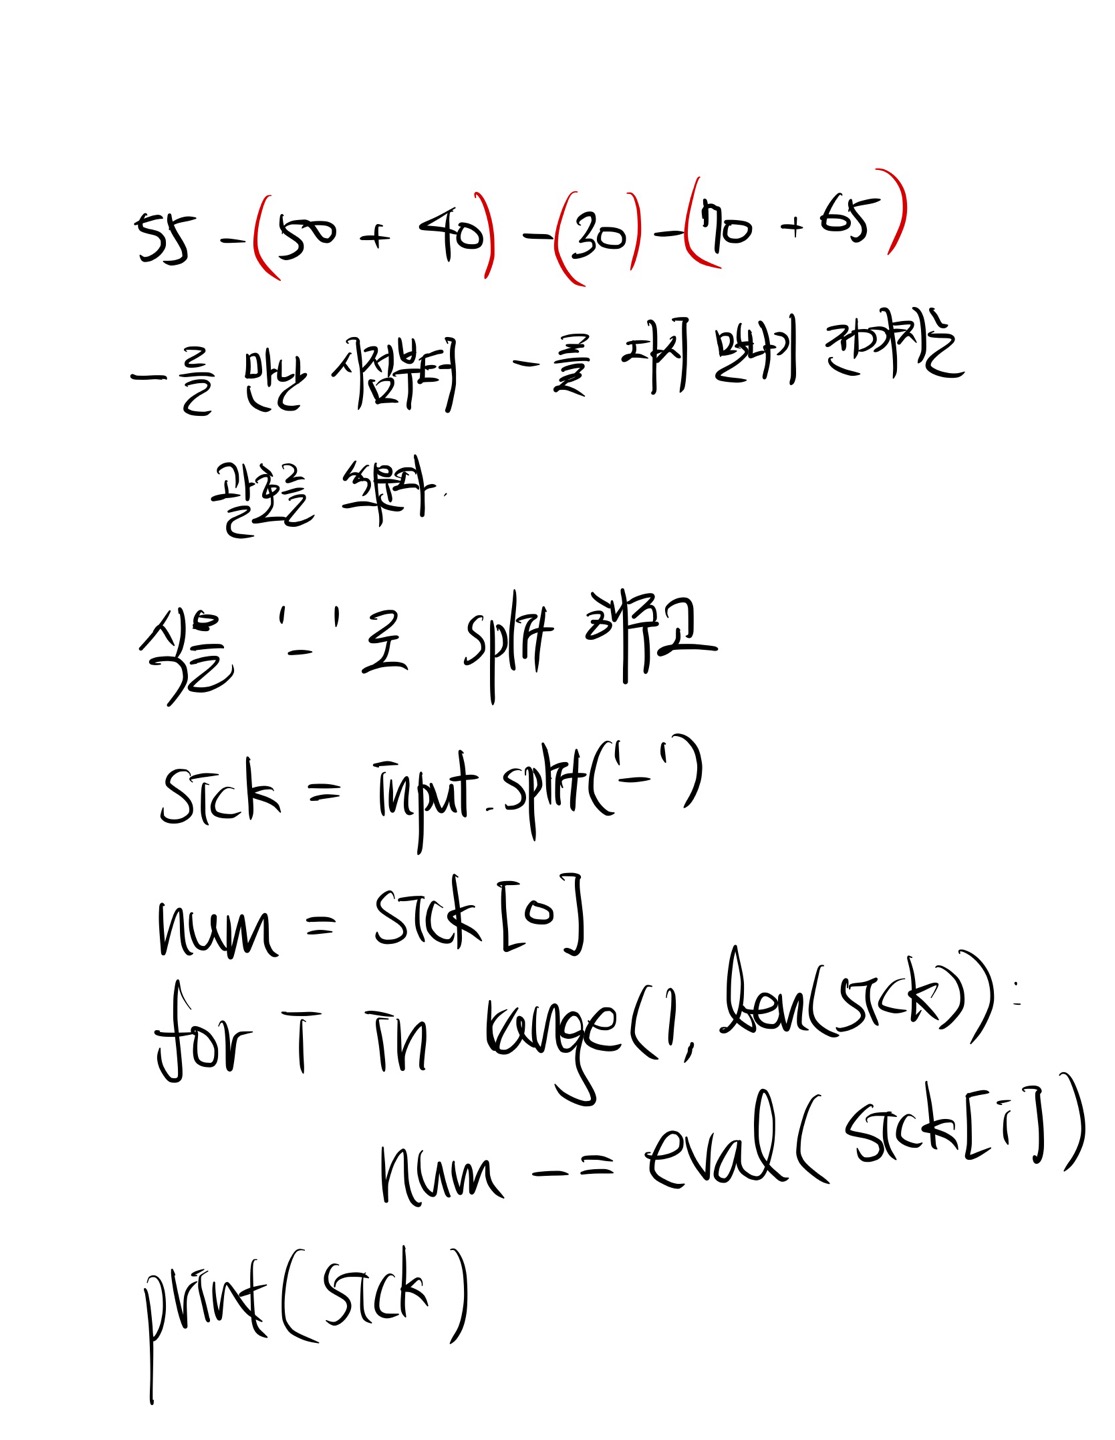 55 - (50 + 40) - (30) - (70 + 65)
-를 만난 시점부터 -를 다시 만나기 전까지는
괄호를 씌운다.
식을 '-'로 split 해주고
sick = input.split('-')
num = sick[0]
for i in range(1, len(sick)):
num -= eval(sick[i])
print(sick)